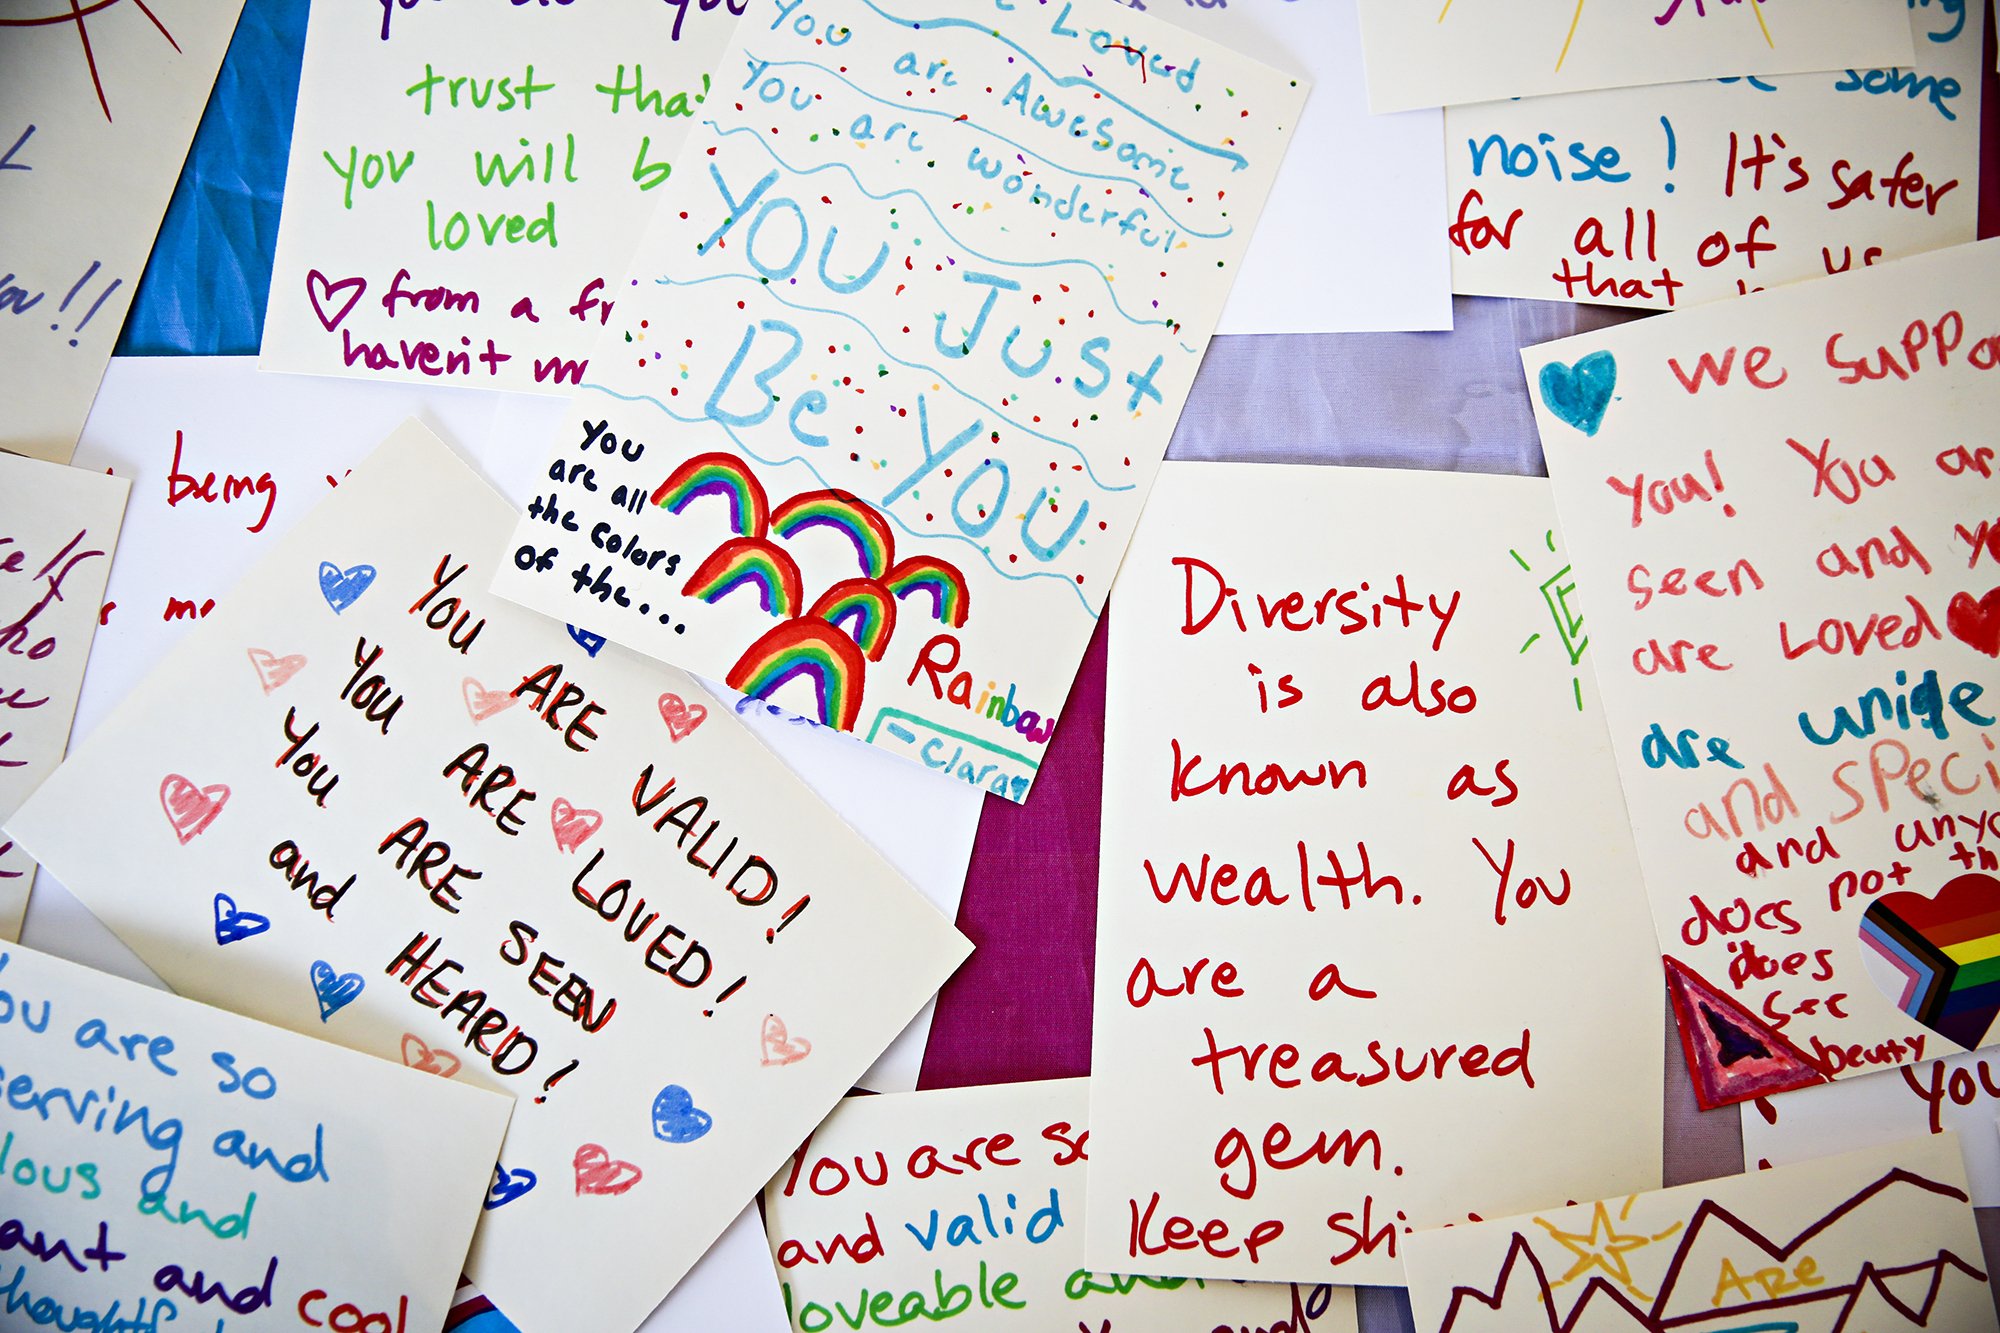 trust
you will b
loved
from a
haven't
Loved
You are Awesome
You are wonderful
You Just
Be YOU
You
are all
the colors
of the...
Rainbow
-Clara
some
noise! It's safer
for all of us
that
we suppo
you! You ar
seen and
are Loved
are uniqe
and speci
and
does not
does
see
beauty
You
being
You ARE VALID!
You ARE LOVED!
You ARE SEEN
and HEARD!
Diversity
is also
known as
wealth. You
are a
treasured
gem.
Keep shi
ou are so
serving and
lous and
ant and cool
You are so
and valid
loveable an
ARE